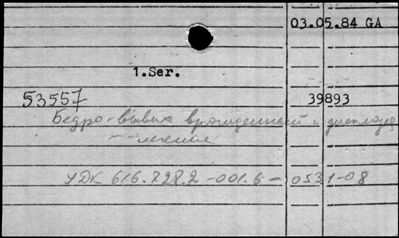 03.05.84 GA
1.Ser.
53557 39893
Бедро-вывих врожденный и дисплазия
- лечение
УДК 616.728.2-001.6-053.1-08